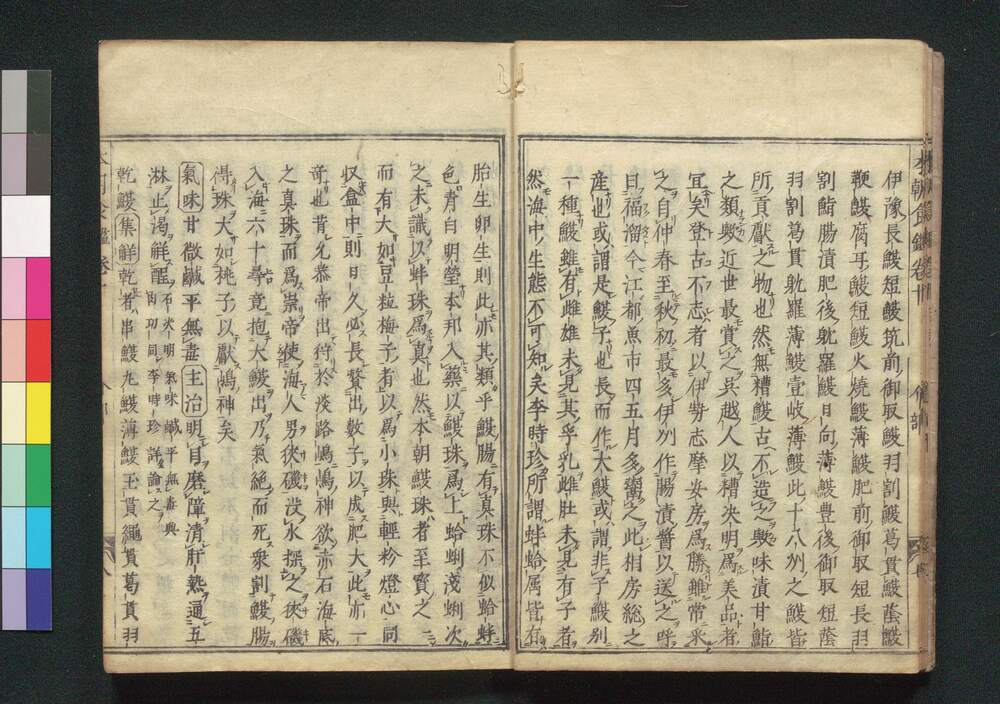 伊豫長鰒短鰒筑前御取鰒羽割鰒葛貫鰒蔭鰒
鞭鰒腐耳鰒短鰒火燒鰒薄鰒肥前御取短長羽
割鮨腸漬肥後躭羅鰒日向薄鰒豊後御取短蔭
羽割葛貫躭羅薄鰒壹岐薄鰒此十八州之鰒皆
所貢獻之物也然無糟鰒古不造之歟味漬甘鮨
之類歟近世最賞之呉越人以糟决明爲美品者
宜矣登古不志者以伊勢志摩安房爲勝雖常采
之自仲春至秋初最多伊州作腸漬醬以送之呼
曰福溜今江都魚市四五月多鬻之此相房総之
産也或謂是鰒子也長而作大鰒或謂非子鰒別
一種鰒雖有雌雄未見其孚乳雌肚未見有子者
然海中生態不可知矣李時珍所謂蚌蛤属皆有
胎生卵生則此亦其類乎鰒腸有真珠不似蛤蚌
色青白明瑩本邦入藥以鰒珠爲上蛤蜊淺蜊次
之未識以蚌珠爲真也然本朝鰒珠者至寳之
而有大如豆粒梅子者以爲小珠與輕粉燈心同
収盒中則日久必長贅出數子以成肥大此亦一
竒也昔允恭帝出狩於淡路嶋嶋神欲赤石海底
之真珠而爲祟帝使海人男狹磯没水探之狹磯
入海六十尋竟抱大鰒出乃氣絶而死衆割鰒腸
得珠大如桃子以獻嶋神矣
氣味甘微鹹平無毒主治明目磨障清肝熱通五
淋止渴觧酲石决明氣味鹹平無毒與肉功同李時珍詳論之
乾鰒集觧乾者串鰒丸鰒薄鰒玉貫繩貫葛貫羽